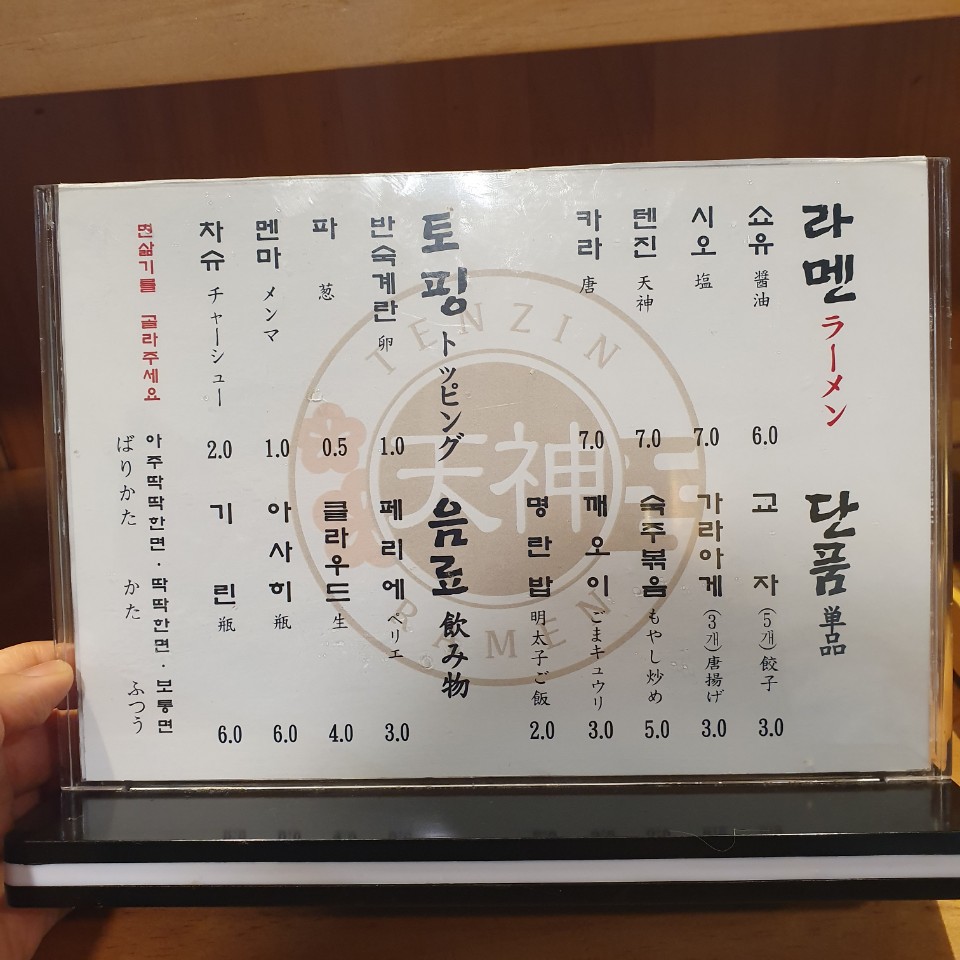 라멘 ラーメン
쇼유 醬油 6.0
시오 塩 7.0
텐진 天神 7.0
카라 唐 7.0
단품 単品
교자 (5개) 餃子 3.0
가라아게 (3개) 唐揚げ 3.0
숙주볶음 もやし炒め 5.0
깨오이 ごまキュウリ 3.0
명란밥 明太子ご飯 2.0
토핑 トッピング
반숙계란 卵 1.0
파 葱 0.5
멘마 メンマ 1.0
차슈 チャーシュー 2.0
음료 飲み物
페리에 ペリエ 3.0
클라우드 生 4.0
아사히 瓶 6.0
기린 瓶 6.0
면삶기를 골라주세요
아주딱딱한면 · 딱딱한면 · 보통면
ばりかた かた ふつう
TENZIN
天神
RAMEN